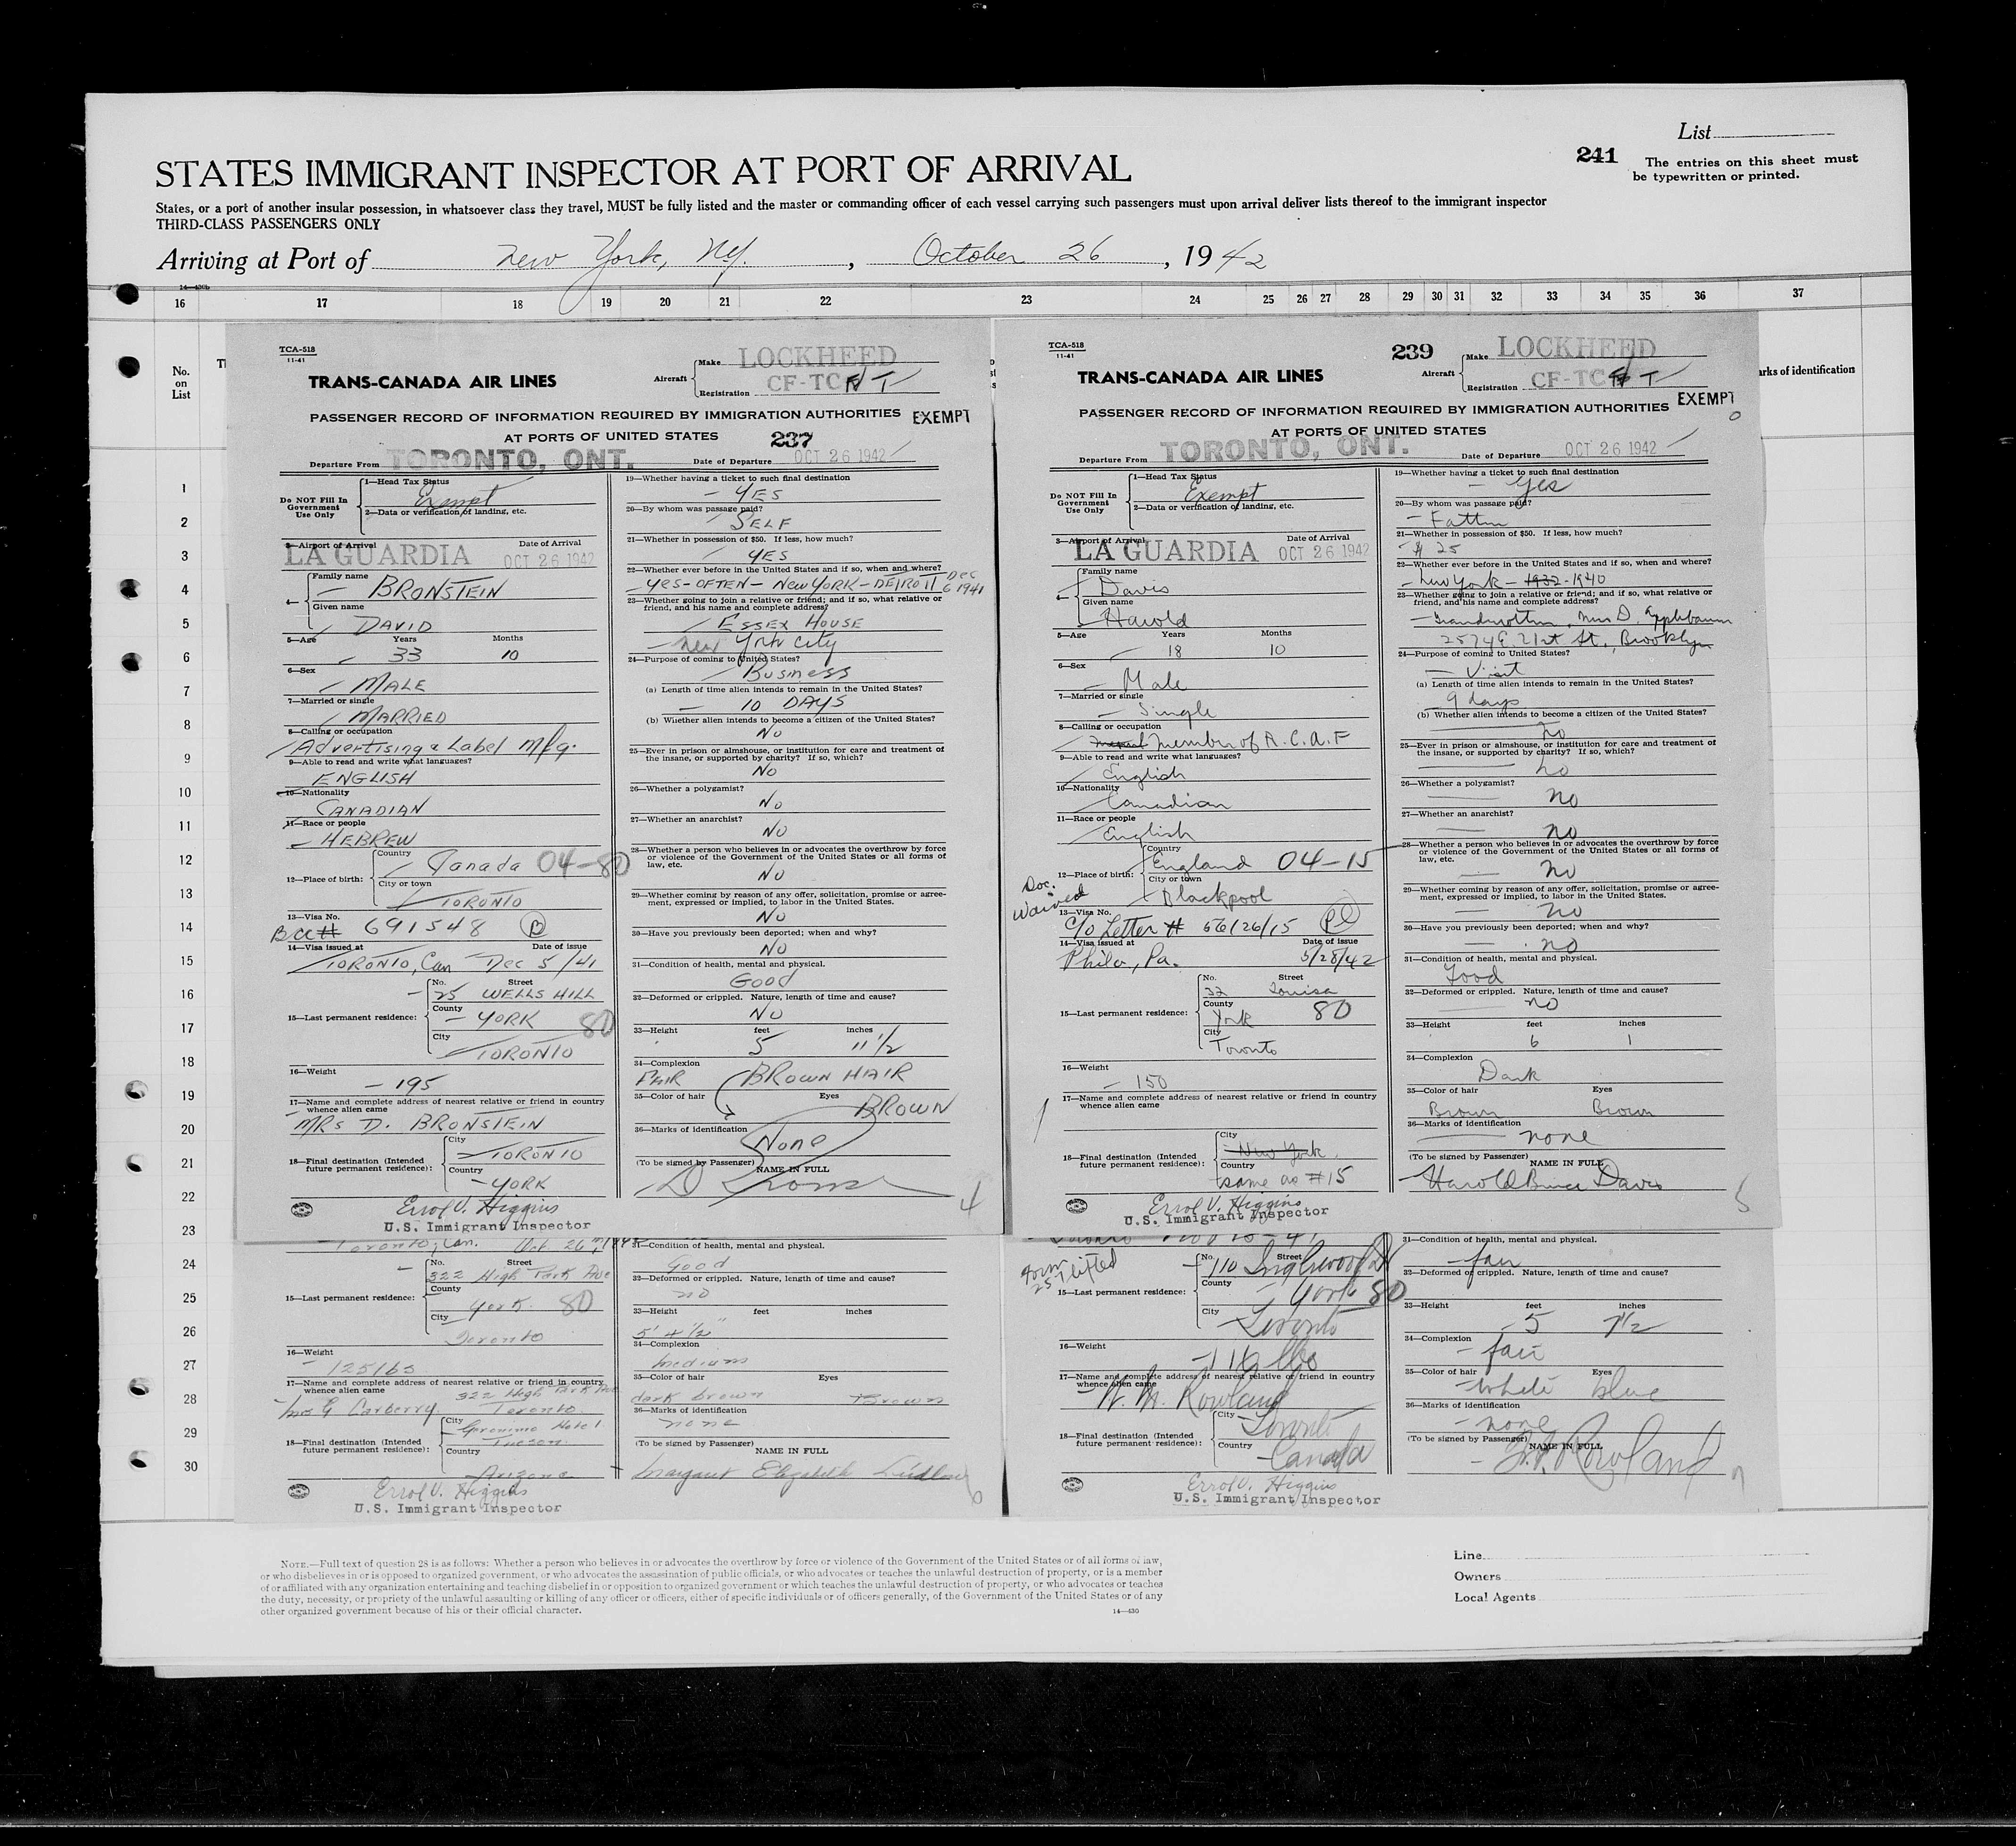 List
241
The entries on this sheet must
be typewritten or printed.
STATES IMMIGRANT INSPECTOR AT PORT OF ARRIVAL
States, or a port of another insular possession, in whatsoever class they travel, MUST be fully listed and the master or commanding officer of each vessel carrying such passengers must upon arrival deliver lists thereof to the immigrant inspector
THIRD-CLASS PASSENGERS ONLY
Arriving at Port of New York, NY. , October 26 , 1942
16 17 18 19 20 21 22 23 24 25 26 27 28 29 30 31 32 33 34 35 36 37
No.
on
List
arks of identification
1
2
3
4
5
6
7
8
9
10
11
12
13
14
15
16
17
18
19
20
21
22
23
24
25
26
27
28
29
30
TCA-518
11-41
TRANS-CANADA AIR LINES
Aircraft
Make LOCKHEED
Registration CF-TC T
PASSENGER RECORD OF INFORMATION REQUIRED BY IMMIGRATION AUTHORITIES EXEMPT
AT PORTS OF UNITED STATES 237
Departure From TORONTO, ONT. Date of Departure OCT 26 1942
Do NOT Fill In
Government
Use Only
1—Head Tax Status
Exempt
2—Data or verification of landing, etc.
3—Airport of Arrival Date of Arrival
LA GUARDIA OCT 26 1942
4—
Family name
BRONSTEIN
Given name
DAVID
5—Age Years Months
33 10
6—Sex
MALE
7—Married or single
MARRIED
8—Calling or occupation
Advertising & Label Mfg.
9—Able to read and write what languages?
ENGLISH
10—Nationality
CANADIAN
11—Race or people
HEBREW
12—Place of birth:
Country
Canada 04-80
City or town
TORONTO
13—Visa No.
691548 B
14—Visa issued at Date of issue
TORONTO, Can Dec 5/41
15—Last permanent residence:
No. Street
25 WELLS HILL
County
YORK 80
City
TORONTO
16—Weight
195
17—Name and complete address of nearest relative or friend in country
whence alien came
MRS D. BRONSTEIN
18—Final destination (Intended
future permanent residence):
City
TORONTO
Country
YORK
Errol V. Higgins
U.S. Immigrant Inspector
19—Whether having a ticket to such final destination
YES
20—By whom was passage paid?
SELF
21—Whether in possession of $50. If less, how much?
YES
22—Whether ever before in the United States and if so, when and where?
YES-OFTEN-NEW YORK-DETROIT Dec 6 1941
23—Whether going to join a relative or friend; and if so, what relative or
friend, and his name and complete address?
ESSEX HOUSE
New York City
24—Purpose of coming to United States?
Business
(a) Length of time alien intends to remain in the United States?
10 DAYS
(b) Whether alien intends to become a citizen of the United States?
No
25—Ever in prison or almshouse, or institution for care and treatment of
the insane, or supported by charity? If so, which?
No
26—Whether a polygamist?
No
27—Whether an anarchist?
No
28—Whether a person who believes in or advocates the overthrow by force
or violence of the Government of the United States or all forms of
law, etc.
No
29—Whether coming by reason of any offer, solicitation, promise or agree-
ment, expressed or implied, to labor in the United States.
No
30—Have you previously been deported; when and why?
NO
31—Condition of health, mental and physical.
GOOD
32—Deformed or crippled. Nature, length of time and cause?
NO
33—Height feet inches
5 11 1/2
34—Complexion
FAIR BROWN HAIR
35—Color of hair Eyes
BROWN
36—Marks of identification
None
(To be signed by Passenger) NAME IN FULL
4
TCA-518
11-41
TRANS-CANADA AIR LINES
239
Aircraft
Make LOCKHEED
Registration CF-TC T
PASSENGER RECORD OF INFORMATION REQUIRED BY IMMIGRATION AUTHORITIES EXEMPT
AT PORTS OF UNITED STATES
Departure From TORONTO, ONT. Date of Departure OCT 26 1942
Do NOT Fill In
Government
Use Only
1—Head Tax Status
Exempt
2—Data or verification of landing, etc.
3—Airport of Arrival Date of Arrival
LA GUARDIA OCT 26 1942
4—
Family name
Davis
Given name
Harold
5—Age Years Months
18 10
6—Sex
Male
7—Married or single
Single
8—Calling or occupation
member of R.C.A.F
9—Able to read and write what languages?
English
10—Nationality
Canadian
11—Race or people
English
12—Place of birth:
Country
England 04-15
City or town
Blackpool
Doc.
Waived
13—Visa No.
C/O Letter # 56126/15
14—Visa issued at Date of issue
Phila, Pa. 5/28/42
15—Last permanent residence:
No. Street
32 Louisa
County
York 80
City
Toronto
16—Weight
150
17—Name and complete address of nearest relative or friend in country
whence alien came
18—Final destination (Intended
future permanent residence):
City
New York
Country
same as #15
Errol V. Higgins
U.S. Immigrant Inspector
19—Whether having a ticket to such final destination
Yes
20—By whom was passage paid?
Father
21—Whether in possession of $50. If less, how much?
$ 25
22—Whether ever before in the United States and if so, when and where?
New York - 1932 - 1940
23—Whether going to join a relative or friend; and if so, what relative or
friend, and his name and complete address?
Grandmother, Mrs D.
2574 E. 21st St., Brooklyn
24—Purpose of coming to United States?
Visit
(a) Length of time alien intends to remain in the United States?
9 days
(b) Whether alien intends to become a citizen of the United States?
no
25—Ever in prison or almshouse, or institution for care and treatment of
the insane, or supported by charity? If so, which?
no
26—Whether a polygamist?
no
27—Whether an anarchist?
no
28—Whether a person who believes in or advocates the overthrow by force
or violence of the Government of the United States or all forms of
law, etc.
no
29—Whether coming by reason of any offer, solicitation, promise or agree-
ment, expressed or implied, to labor in the United States.
no
30—Have you previously been deported; when and why?
no
31—Condition of health, mental and physical.
Good
32—Deformed or crippled. Nature, length of time and cause?
no
33—Height feet inches
6 1
34—Complexion
Dark
35—Color of hair Eyes
Brown Brown
36—Marks of identification
none
(To be signed by Passenger) NAME IN FULL
Harold Bruce Davis
5
Toronto, Can. Oct. 26
15—Last permanent residence:
No. Street
322 High Park Ave
County
York 80
City
Toronto
16—Weight
125 lbs
17—Name and complete address of nearest relative or friend in country
whence alien came 322 High Park Ave
Mrs G Carberry Toronto
18—Final destination (Intended
future permanent residence):
City
Geronimo Hotel
Tucson
Country
Arizona
Errol V. Higgins
U.S. Immigrant Inspector
31—Condition of health, mental and physical.
Good
32—Deformed or crippled. Nature, length of time and cause?
no
33—Height feet inches
5' 4 1/2"
34—Complexion
medium
35—Color of hair Eyes
dark brown Brown
36—Marks of identification
none
(To be signed by Passenger) NAME IN FULL
Margaret Elizabeth
6
Form
257 lifted
15—Last permanent residence:
No. Street
110 Inglewood Dr
County
York 80
City
Toronto
16—Weight
116 lbs
17—Name and complete address of nearest relative or friend in country
whence alien came
Rowland
18—Final destination (Intended
future permanent residence):
City
Toronto
Country
Canada
Errol V. Higgins
U.S. Immigrant Inspector
31—Condition of health, mental and physical.
fair
32—Deformed or crippled. Nature, length of time and cause?
33—Height feet inches
5 7 1/2
34—Complexion
fair
35—Color of hair Eyes
white blue
36—Marks of identification
none
(To be signed by Passenger) NAME IN FULL
Rowland
7
NOTE.—Full text of question 28 is as follows: Whether a person who believes in or advocates the overthrow by force or violence of the Government of the United States or of all forms of law,
or who disbelieves in or is opposed to organized government, or who advocates the assassination of public officials, or who advocates or teaches the unlawful destruction of property, or is a member
of or affiliated with any organization entertaining and teaching disbelief in or opposition to organized government or which teaches the unlawful destruction of property, or who advocates or teaches
the duty, necessity, or propriety of the unlawful assaulting or killing of any officer or officers, either of specific individuals or of officers generally, of the Government of the United States or of any
other organized government because of his or their official character.
14—430
Line
Owners
Local Agents